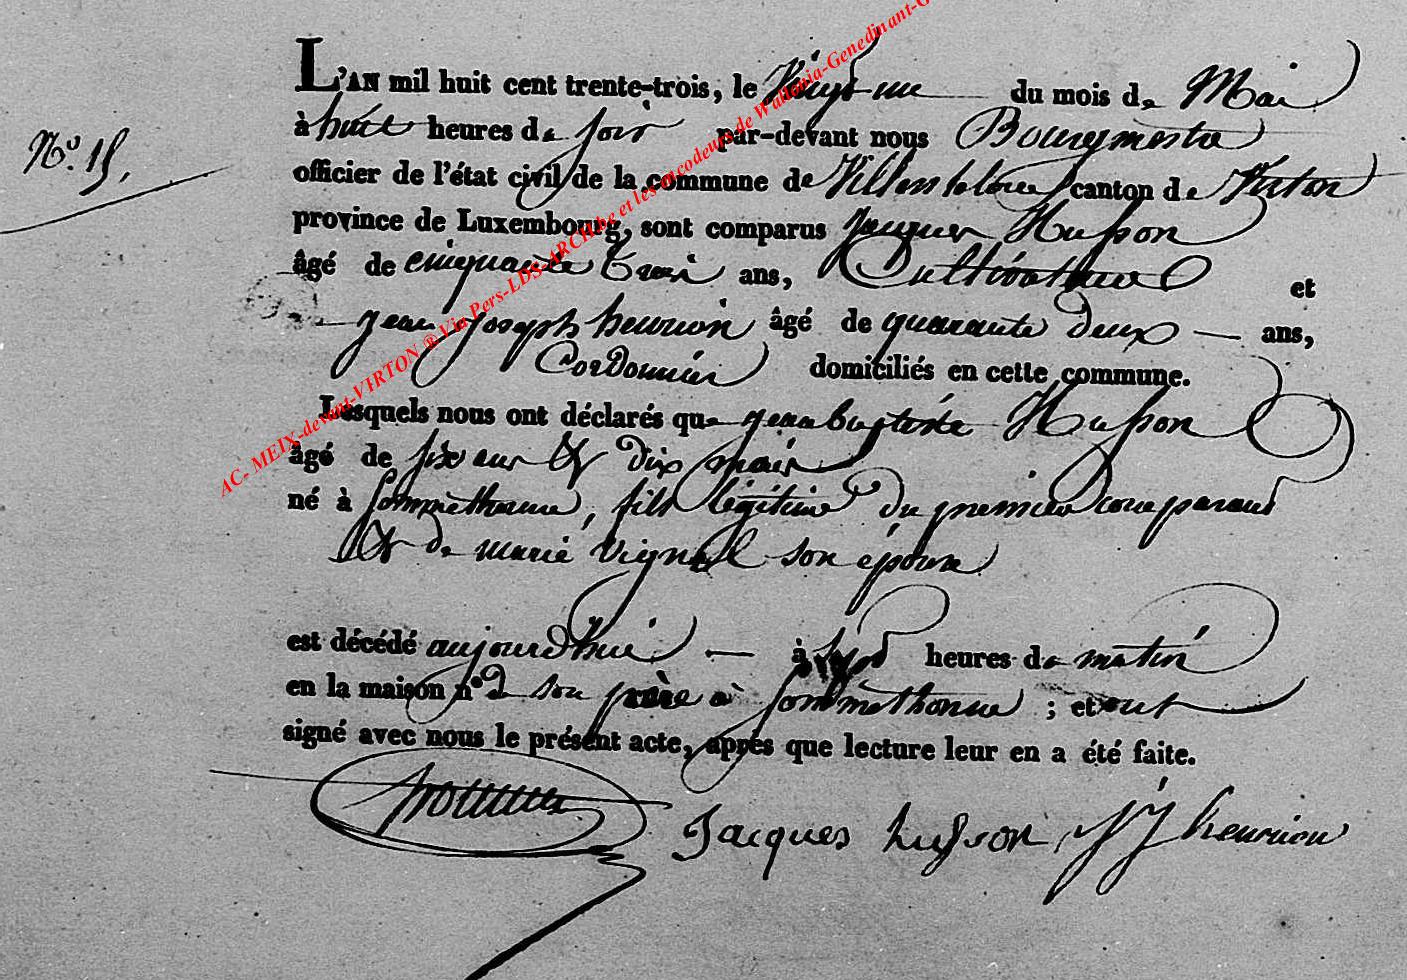 L'AN mil huit cent trente-trois, le Vingt un du mois de Mai
N.º 15.
à huit heures du soir par-devant nous Bourgmestre
officier de l'état civil de la commune de Villers la loue canton de Virton
province de Luxembourg, sont comparus Jacques Husson
âgé de cinquante trois ans, Cultivateur et
jean joseph henrion âgé de quarante deux ans,
Cordonnier domiciliés en cette commune.
Lesquels nous ont déclarés que jean baptiste Husson
âgé de six ans & dix mois
né à Sommethonne, fils légitime du premier comparant
& de marie vignol son épouse
est décédé aujourd'hui à sept heures du matin
en la maison nº de son père à Sommethonne ; et ont
signé avec nous le présent acte, après que lecture leur en a été faite.
Jacques husson JJ henrion
AC- MEIX-devant-VIRTON ® Via Pers-LDS-ARCH.be et les encodeurs de Wallonia-Genedinant-G